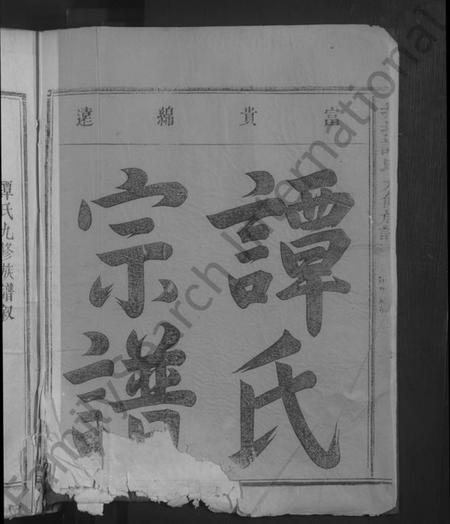 富貴綿遠
譚氏
宗譜
譚氏九修族譜叙
FamilySearch International